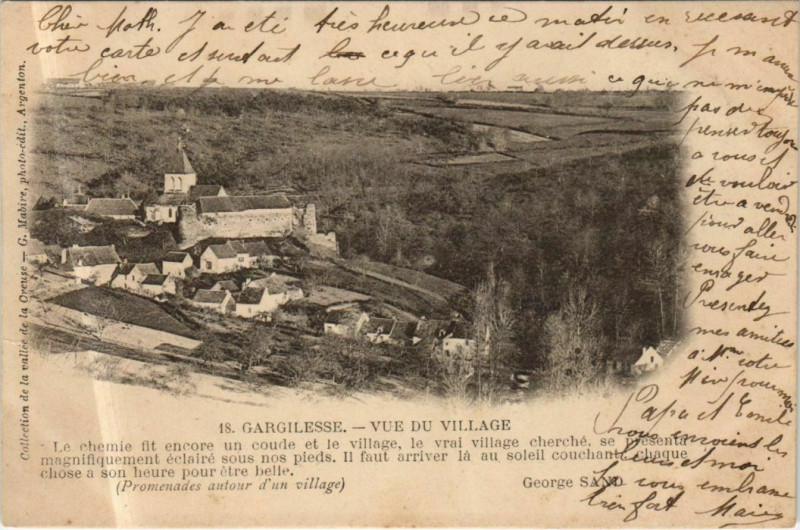 Cher Math. J'ai été très heureuse ce matin en recevant
votre carte et surtout ce qu'il y avait dessus.
bien et je me lasse bien aussi ce qui
ne m'empêche
pas de
penser toujours
à vous et
de vouloir
être à vendredi
pour aller
vous faire
enrager
Présentez
mes amitiés
à Mme votre
Mère pour moi
Papa et Emile
vous envoient les
leurs et moi
je vous embrasse
bien fort Marie
Collection de la vallée de la Creuse — G. Mabire, photo-édit., Argenton.
18. GARGILESSE. — VUE DU VILLAGE
Le chemie fit encore un coude et le village, le vrai village cherché, se présenta
magnifiquement éclairé sous nos pieds. Il faut arriver là au soleil couchant: chaque
chose a son heure pour être belle.
(Promenades autour d'un village)
George SAND